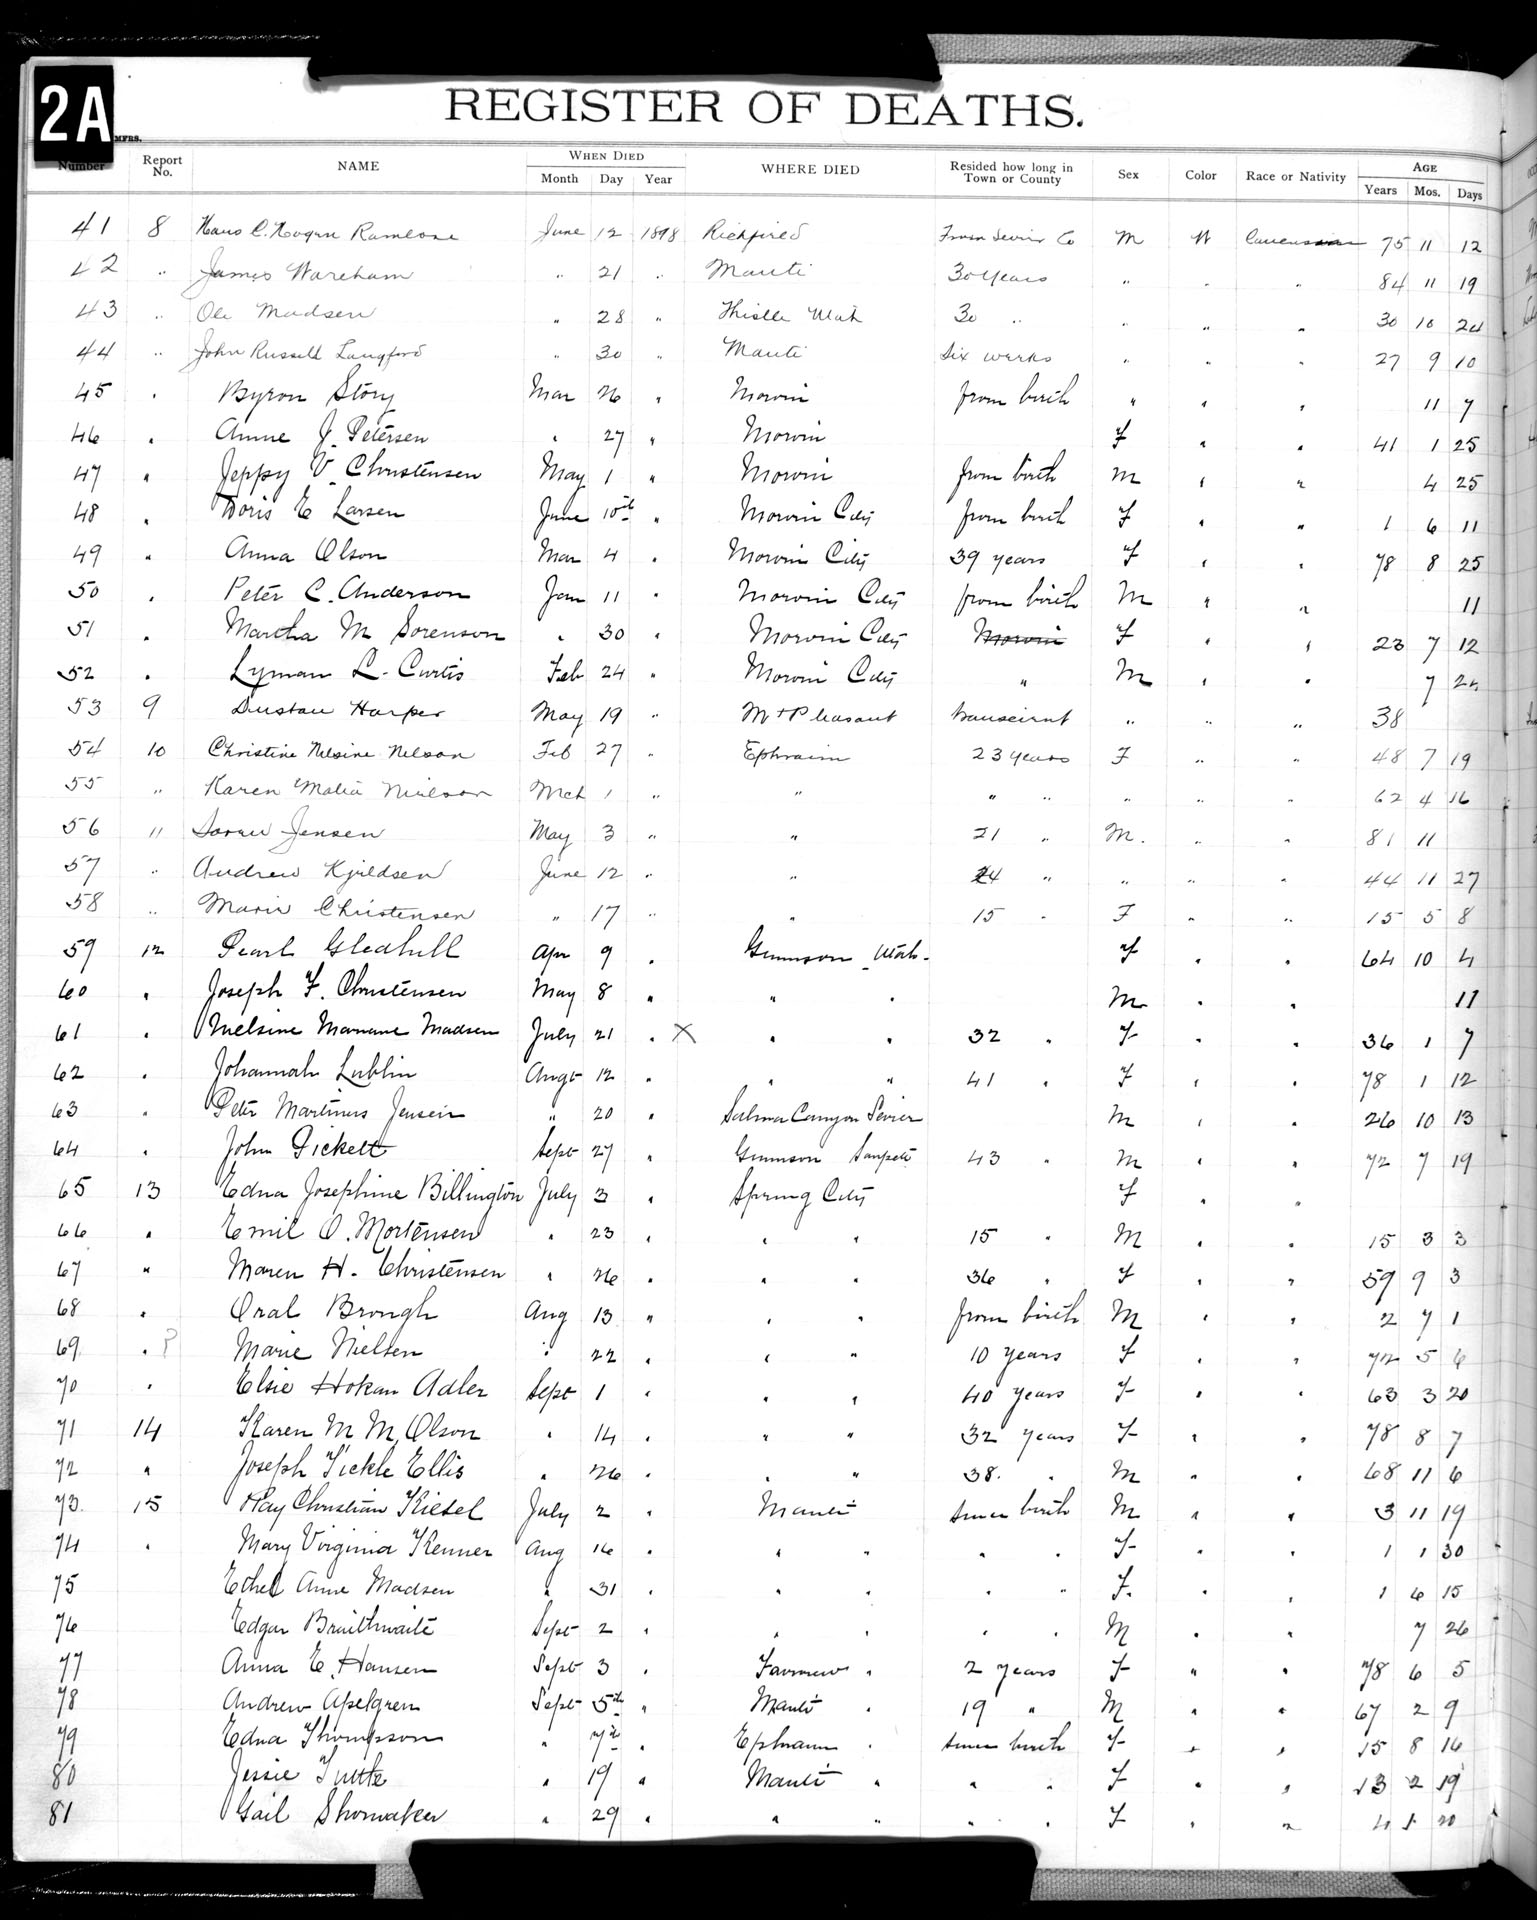 2A
MFRS.
REGISTER OF DEATHS.
Number Report No. NAME WHEN DIED Month Day Year WHERE DIED Resided how long in Town or County Sex Color Race or Nativity AGE Years Mos. Days
41 8 Hans C. Hogan June 12 1898 Richfield From Sevier Co M W 75 11 12
42 " James Wareham " 21 " Manti 30 years " " " 84 11 19
43 " Ole Madsen " 28 " Thistle Utah 30 " " " " 30 10 24
44 " John Russell Langford " 30 " Manti Six weeks " " " 27 9 10
45 " Byron Story Mar 26 " Moroni from birth " " " 11 7
46 " Anne J. Petersen " 27 " Moroni F " " 41 1 25
47 " Jeppy V. Christensen May 1 " Moroni from birth M " " 4 25
48 " Doris E Larsen June 10th " Moroni City from birth F " " 1 6 11
49 " Anna Olson Mar 4 " Moroni City 39 years F " " 78 8 25
50 " Peter C. Anderson Jan 11 " Moroni City from birth M " " 11
51 " Martha M Sorenson " 30 " Moroni City Moroni F " " 23 7 12
52 " Lyman L. Curtis Feb 24 " Moroni City " M " " 7
53 9 Harper May 19 " Mt Pleasant " " " 38
54 10 Christine Nelsine Nelson Feb 27 " Ephraim 23 years F " " 48 7 19
55 " Karen Maria Nielson Mch 1 " " " " " " " 62 4 16
56 11 Soren Jensen May 3 " " 21 " M. " " 81 11
57 " Andrew Kjeldsen June 12 " " 24 " " " " 44 11 27
58 " Marie Christensen " 17 " " 15 " F " " 15 5 8
59 12 Pearl Gledhill Apr 9 " Gunnison Utah F " " 64 10 4
60 " Joseph F. Christensen May 8 " " " M " " 11
61 " Nelsine Mariane Madsen July 21 " X " " 32 " F " " 36 1 7
62 " Johannah Lublin Augt 12 " " " 41 " F " " 78 1 12
63 " Peter Martinus Jensen " 20 " Salina Canyon Sevier M " " 26 10 13
64 " John Pickett Sept 27 " Gunnison Sanpete 43 " M " " 72 7 19
65 13 Edna Josephine Billington July 3 " Spring City F " "
66 " Emil O. Mortensen " 23 " " " 15 " M " " 15 3 3
67 " Maren H. Christensen " 26 " " " 36 " F " " 59 9 3
68 " Oral Brough Aug 13 " " " from birth M " " 2 7 1
69 " ? Marie Nielsen " 22 " " " 10 years F " " 72 5 6
70 " Elsie Hokan Adler Sept 1 " " " 40 years F " " 63 3 20
71 14 Karen M M, Olson " 14 " " " 32 years F " " 78 8 7
72 " Joseph Tickle Ellis " 26 " " " 38. " M " " 68 11 6
73 15 Ray Christian Kiesel July 2 " Manti since birth M " " 3 11 19
74 " Mary Virginia Kenner Aug 16 " " " " " F " " 1 1 30
75 Ethel Anne Madsen " 31 " " " " " F. " " 1 6 15
76 Edgar Braithwaite Sept 2 " " " " " M " " 7 26
77 Anna E, Hansen Sept 3 " Fairview " 2 years F " " 78 6 5
78 Andrew Apelgren Sept 5th " Manti " 19 " M " " 67 2 9
79 Edna Thompson " 7th " Ephraim " since birth F " " 15 8 16
80 Jessie Tuttle " 19 " Manti " " " F " " 13 2 19
81 Gail Shomaker " 29 " " " " " F " "